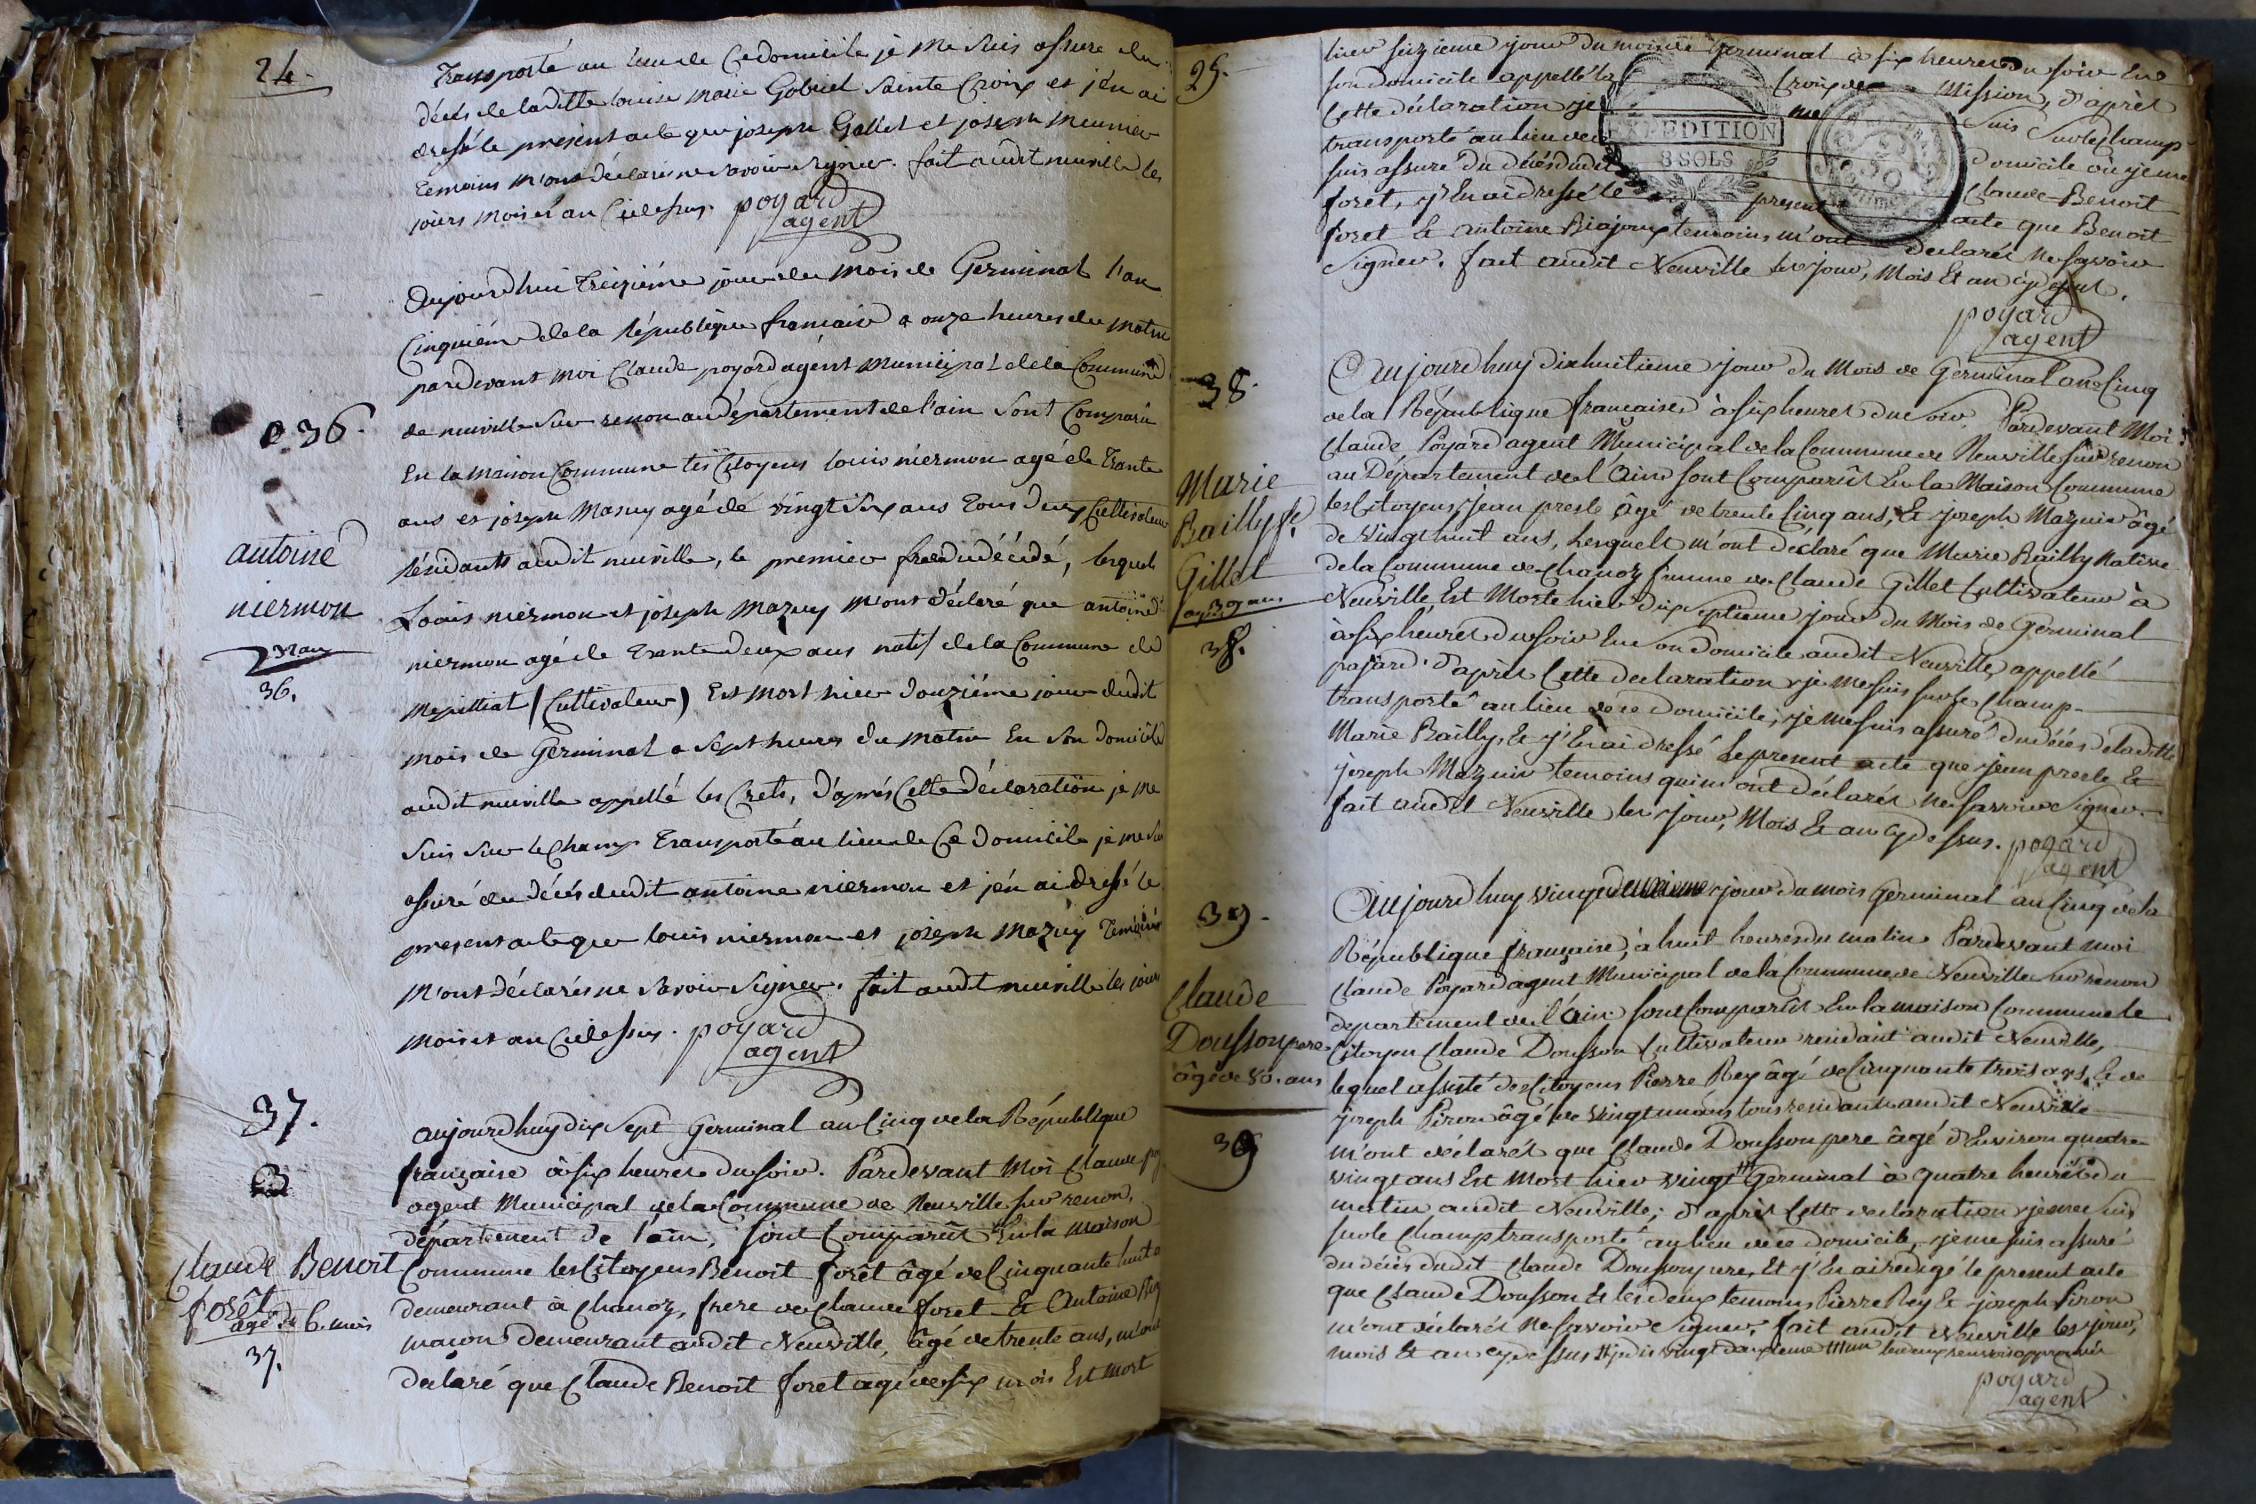 24.
Transporté au lieu de ce domicile je me suis assuré du
décès de laditte louise marie Gabriel Sainte Croix et j'en ai
dressé le présent acte que joseph Gallet et joseph meunier
témoins m'ont déclarés ne savoir signer. fait audit neuville les
jours mois et an ci dessus. poyard
agent
aujourd'hui treizième jour du mois de Germinal l'an
Cinquième de la République française a onze heures du matin
pardevant moi Claude poyard agent municipal de la Commune
de neuville sur renon au département de l'ain sont Comparu
036.
En la maison Commune les Citoyens louis niermon agé de trante
ans et joseph Mazuy agé de vingt six ans tous deux Cultivateur
antoine
niermon
32 ans
36.
résidants audit neuville, le premier frere du décédé, lesquels
Louis niermon et joseph mazuy m'ont déclaré que antoine
niermon agé de trante deux ans natif de la Commune de
mepilliat (Cultivateur) Est mort hier douzième jour dudit
mois de Germinal a sept heures du matin En son domicile
audit neuville appellé les Crets, d'après Cette déclaration je me
suis sur le Champ Transporté au lieu de Ce domicile je me suis
assuré du décès dudit antoine niermon et j'en ai dressé le
present acte que louis niermon et joseph mazuy Témoins
m'ont déclarés ne savoir signer. fait audit neuville les jours
mois et an Ci dessus. poyard
agent
37.
aujourd'huy dix sept Germinal an Cinq de la République
française à six heures du soir. Pardevant Moi Claude po
agent Municipal de la Commune de Neuville sur renon,
département de l'ain, sont Comparût En la maison
Claude Benoit
forêt
agé de 6. mois
37.
Commune les Citoyens Benoît forêt âgé de Cinquante huit a
demeurant à Chanoz, frere de Claude foret Et Antoine
maçon demeurant audit Neuville, âgé de trente ans, m'ont
déclaré que Claude Benoit foret agé de six mois Est mort
25.
hier seizieme jour du mois de Germinal à six heures du soir En
son domicile appellé la Croix de Mission, d'après
Cette déclaration je me suis sur le Champ
transporté au lieu de domicile où je me
suis assuré du décès dudit Claude Benoit
forêt, j'En ai dressé le present acte que Benoit
foret Et antoine Biajoux temoins m'ont declarés ne savoir
signer. fait audit Neuville les jour, Mois Et an
EXPEDITION
8 SOLS
poyard
agent
38.
Aujourd'huy dixhuitieme jour du Mois de Germinal an Cinq
de la République française à six heures du soir. Pardevant Moi
Claude Poyard agent Municipal de la Commune de Neuville sur renon
au Département de l'Ain sont Comparût En la Maison Commune
Marie
Bailly fe.
Gillet
38.
les Citoyens Jean presle âgé de trente Cinq ans, Et joseph Mazuir âgé
de Vingt huit ans, Lesquels m'ont déclaré que Marie Bailly Native
de la Commune de Chanoz femme de Claude Gillet Cultivateur à
Neuville Est Morte hier dix septieme jour du Mois de Germinal
à six heures du soir En son domicile audit Neuville, appellé
pajard. d'après Cette declaration je me suis sur le Champ
transporté au lieu de ce domicile, je me suis assuré du décès de laditte
Marie Bailly, Et j'En ai dressé Le present acte que jean presle Et
joseph Mazuir temoins qui m'ont déclarés ne savoir Signer.
fait audit Neuville les jour, Mois Et an cy dessus. poyard
agent
39.
Aujourd'huy vingt deuxieme jour du mois Germinal an Cinq de la
République française, à huit heures du matin Pardevant moi
Claude Poyard agent Municipal de la Commune de Neuville sur renon
département de l'Ain sont Comparût En la maison Commune le
Claude
Dousson pere
âgé de 80. ans
39
Citoyen Claude Dousson Cultivateur residant audit Neuville,
lequel assisté des Citoyens Pierre Rey âgé de Cinquante trois ans, Et de
joseph Piron âgé de Vingt un ans tous residants audit Neuville
m'ont déclarés que Claude Dousson pere âgé d'Environ quatre
vingt ans Est Mort hier vingt Germinal à quatre heures du
matin audit Neuville; d'après Cette declaration je me suis
sur le Champ transporté au lieu de ce domicile, je me suis assuré
du décès dudit Claude Dousson pere, Et j'En ai redigé le present acte
que Claude Dousson Et les deux temoins Pierre Rey Et joseph Piron
m'ont déclarés Ne Savoir Signer, fait audit Neuville les jour,
mois Et an cy dessus
poyard
agent